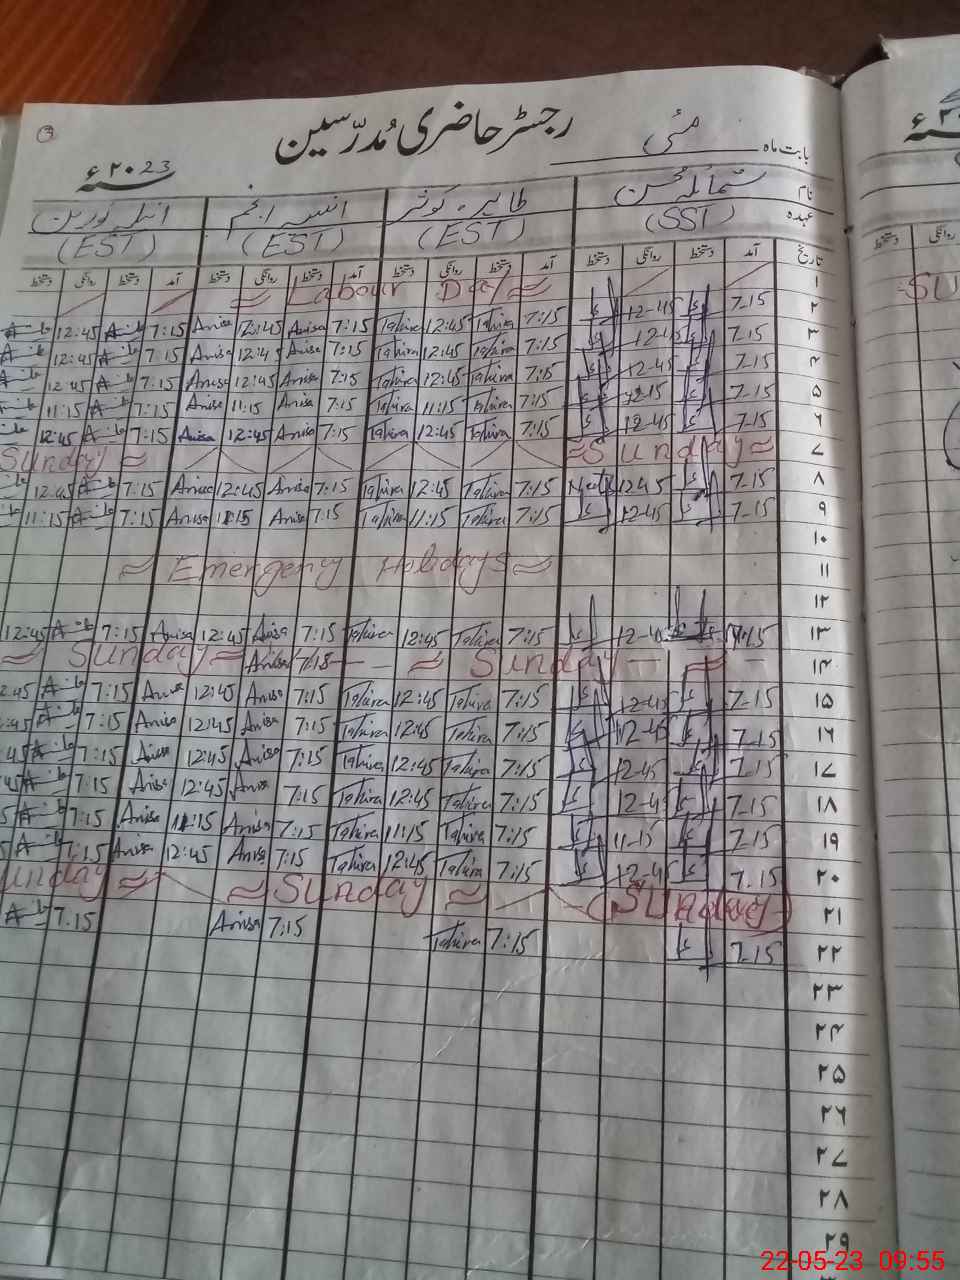 رجسٹر حاضری مُدرّسین
بابت ماہ مئی ۲۰23ء سنہ
نام شمائلہ محسن طاہرہ کوثر انیسہ انجم انیلہ نورین
عہدہ (SST) (EST) (EST) (EST)
تاریخ آمد دستخط روانگی دستخط آمد دستخط روانگی دستخط آمد دستخط روانگی دستخط آمد دستخط روانگی دستخط
۱ ≈ Labour Day ≈
۲ 7-15 12-45 7:15 Tahira 12:45 Tahira 7:15 Anisa 12:45 Anisa 7:15 12:45
۳ 7-15 12-45 7:15 Tahira 12:45 Tahira 7:15 Anisa 12:45 Anisa 7:15 12:45
۴ 7-15 12-45 7:15 Tahira 12:45 Tahira 7:15 Anisa 12:45 Anisa 7:15 12:45
۵ 7-15 7:15 Tahira 11:15 Tahira 7:15 Anisa 11:15 Anisa 7:15 11:15
۶ 7-15 12-45 7:15 Tahira 12:45 Tahira 7:15 Anisa 12:45 Anisa 7:15 12:45
۷ ≈ Sunday ≈ Sunday ≈
۸ 7-15 12-45 7:15 Tahira 12:45 Tahira 7:15 Anisa 12:45 Anisa 7:15 12:45
۹ 7-15 12-45 7:15 Tahira 11:15 Tahira 7:15 Anisa 11:15 Anisa 7:15 11:15
۱۰
۱۱ ≈ Emergency Holidays ≈
۱۲
۱۳ 7-15 12-45 7:15 Tahira 12:45 Tahira 7:15 Anisa 12:45 Anisa 7:15 12:45
۱۴ ≈ Sunday ≈ Anisa 7:15 ≈ Sunday ≈
۱۵ 7-15 12-45 7:15 Tahira 12:45 Tahira 7:15 Anisa 12:45 Anisa 7:15 2:45
۱۶ 7-15 12-45 7:15 Tahira 12:45 Tahira 7:15 Anisa 12:45 Anisa 7:15 :45
۱۷ 7-15 12-45 7:15 Tahira 12:45 Tahira 7:15 Anisa 12:45 Anisa 7:15 45
۱۸ 7-15 12-45 7:15 Tahira 12:45 Tahira 7:15 Anisa 12:45 Anisa 7:15 45
۱۹ 7-15 11-15 7:15 Tahira 11:15 Tahira 7:15 Anisa 11:15 Anisa 7:15 5
۲۰ 7-15 12-45 7:15 Tahira 12:45 Tahira 7:15 Anisa 12:45 Anisa 7:15 5
۲۱ (Sunday) ≈ Sunday ≈ unday ≈
۲۲ 7-15 7:15 Tahira 7:15 Anisa 7:15
۲۳
۲۴
۲۵
۲۶
۲۷
۲۸
۲۹
22-05-23 09:55